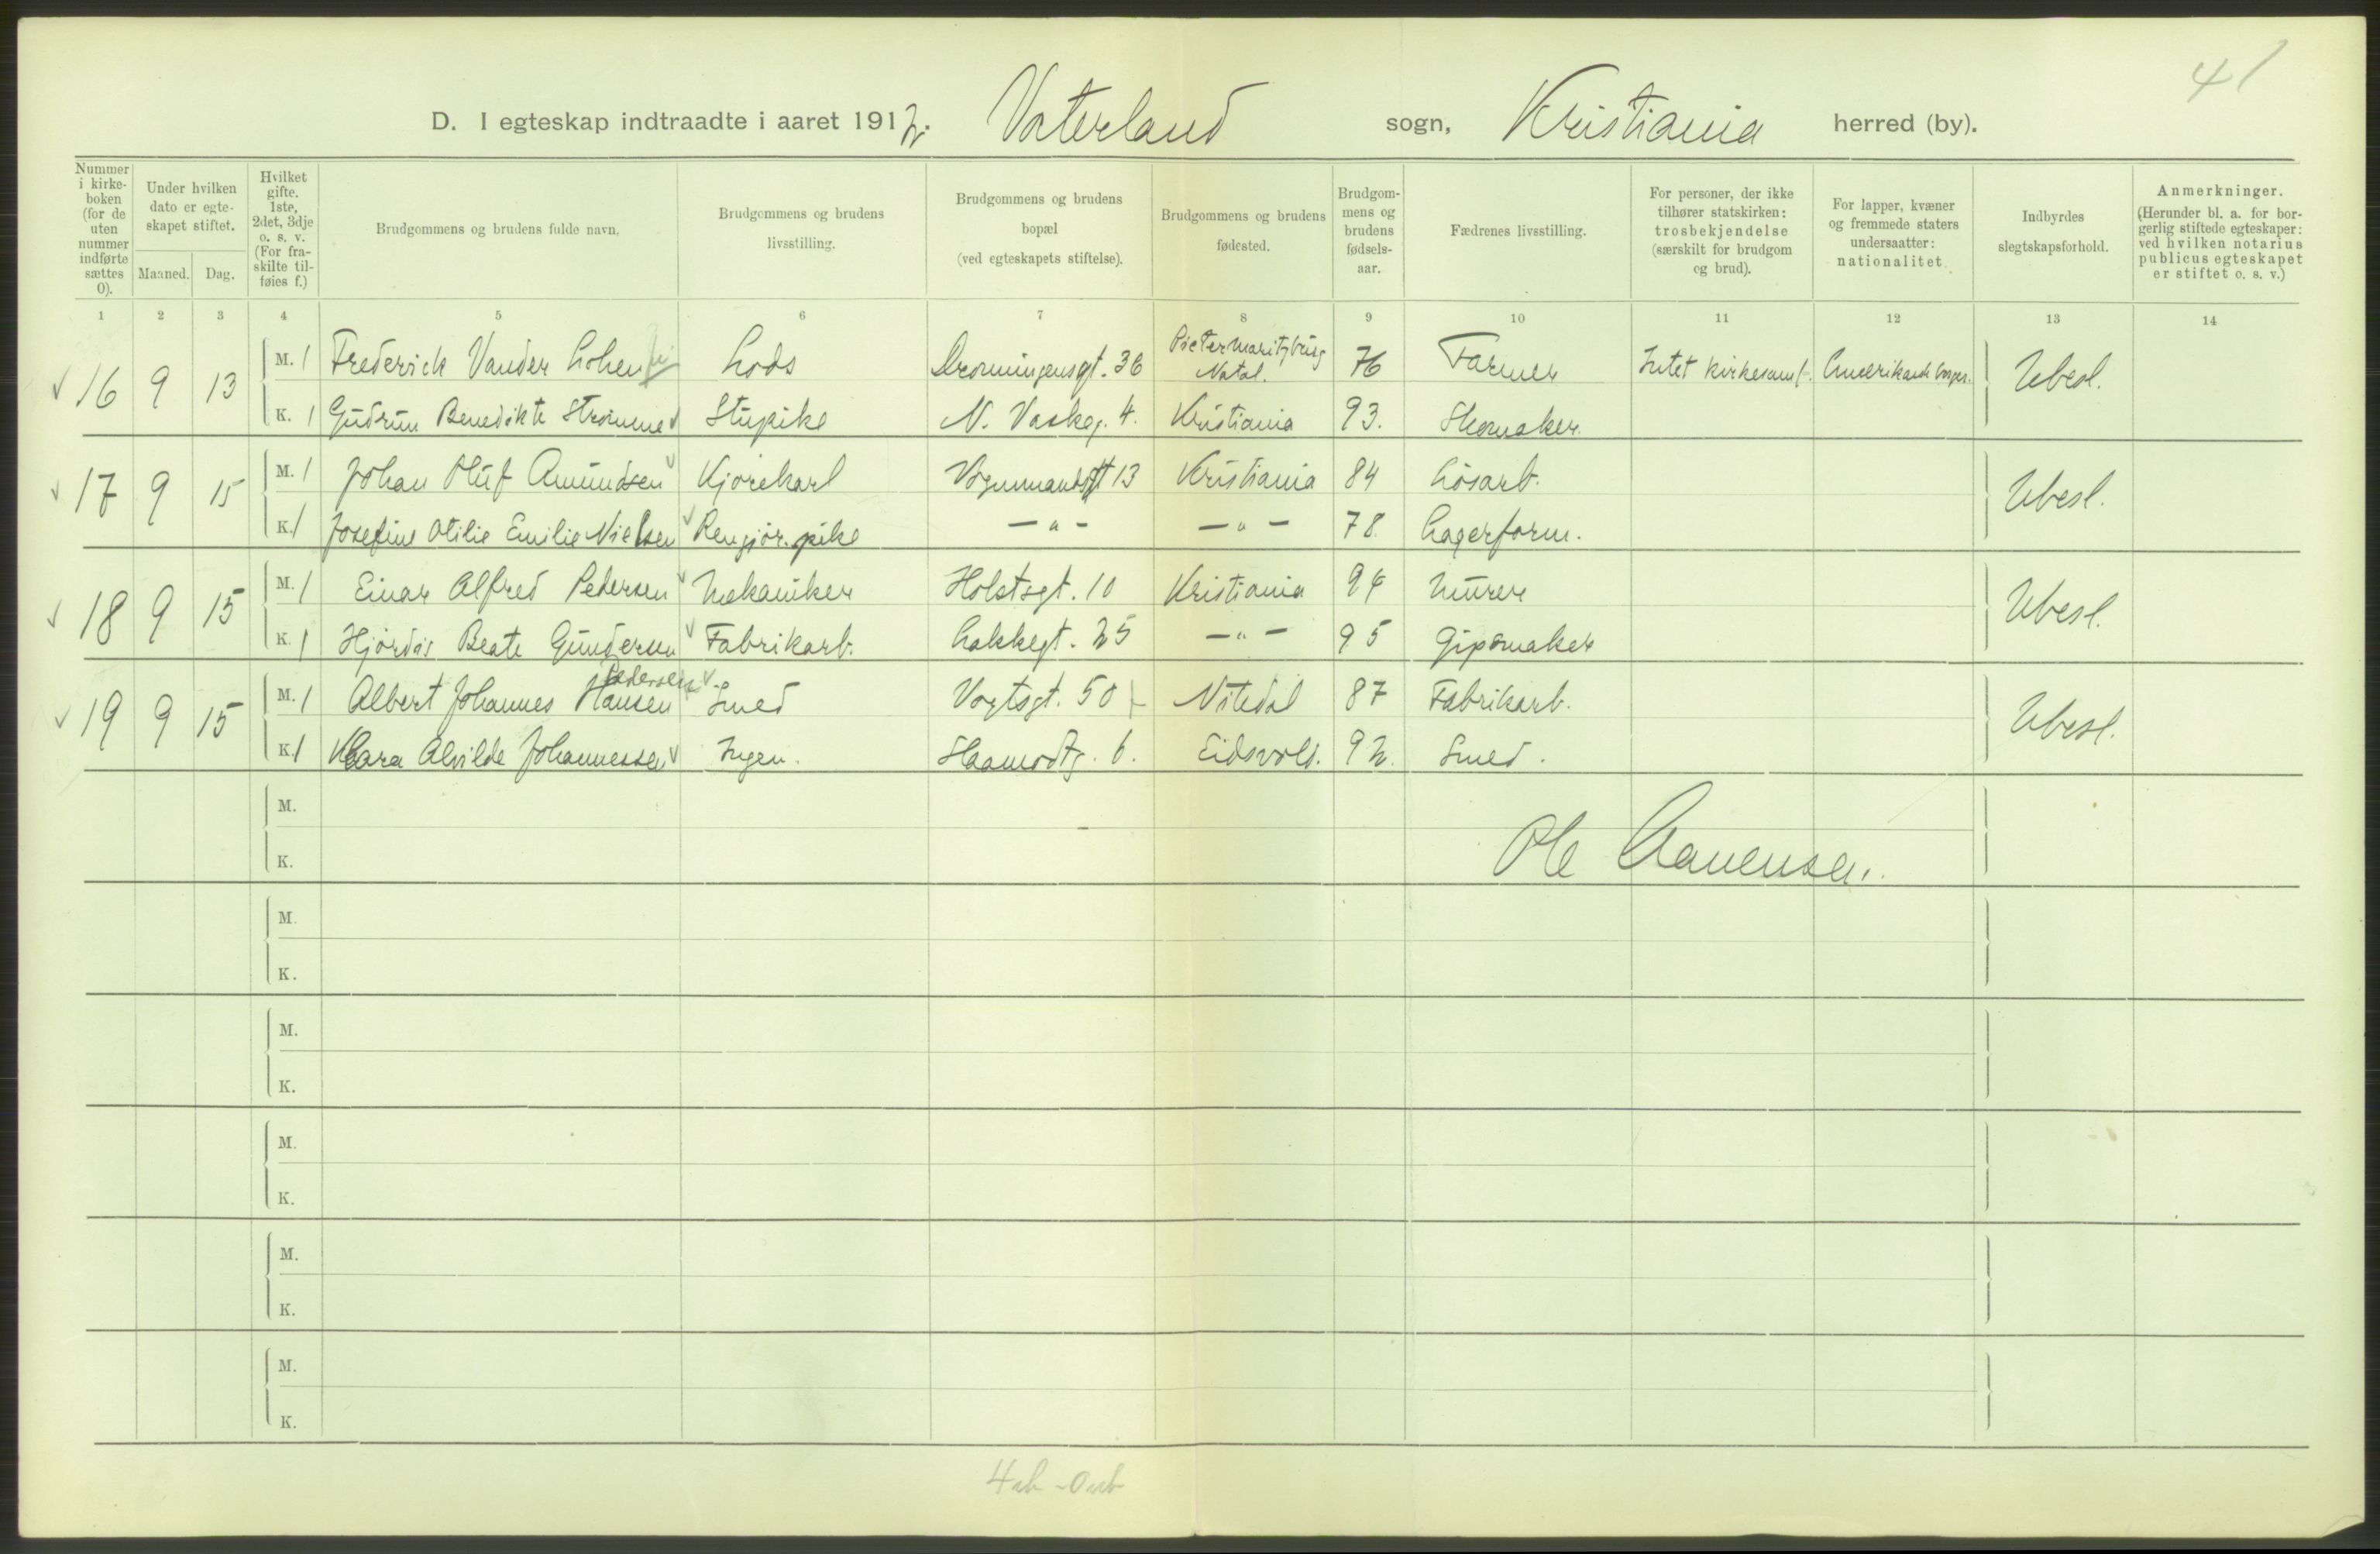 41
D. I egteskap indtraadte i aaret 1912. Vaterland sogn, Kristiania herred (by).
Nummer i kirke-boken (for de uten nummer indførte sættes 0).
Under hvilken dato er egte-skapet stiftet.
Maaned. Dag.
Hvilket gifte. 1ste, 2det, 3dje o. s. v. (For fra-skilte til-føies f.)
Brudgommens og brudens fulde navn.
Brudgommens og brudens livsstilling.
Brudgommens og brudens bopæl (ved egteskapets stiftelse).
Brudgommens og brudens fødested.
Brudgom-mens og brudens fødsels-aar.
Fædrenes livsstilling.
For personer, der ikke tilhører statskirken: trosbekjendelse (særskilt for brudgom og brud).
For lapper, kvæner og fremmede staters undersaatter: nationalitet.
Indbyrdes slegtskapsforhold.
Anmerkninger. (Herunder bl. a. for bor-gerlig stiftede egteskaper: ved hvilken notarius publicus egteskapet er stiftet o. s. v.)
1 2 3 4 5 6 7 8 9 10 11 12 13 14
16 9 13 M. 1 Frederick Vander Lohen Lods Dronningensgt. 36 Pietermaritzburg Natal. 76 Farmer Intet kirkesamf. Amerikansk borger. Ubesl.
K. 1 Gudrun Benedikte Strømme Stupike N. Vaskeg. 4. Kristiania 93. Skomaker.
17 9 15 M. 1 Johan Oluf Amundsen Kjørekarl Vognmandsgt 13 Kristiania 84 Løsarb. Ubesl.
K. 1 Josefine Otilie Emilie Nielsen Rengjør.pike — " — — " — 78. Lagerform.
18 9 15 M. 1 Einar Alfred Pedersen Mekaniker Holstsgt. 10 Kristiania 94 Murer Ubesl.
K. 1 Hjørdis Beate Gundersen Fabrikarb. Lakkegt. 25 — " — 95 Gipsmaker
Pedersen
19 9 15 M. 1 Albert Johannes Hansen Smed Vogtsgt. 50 Nitedal 87 Fabrikarb. Ubesl.
K. 1 Klara Alvilde Johannessen Ingen. Haamodtg. 6. Eidsvold. 92. Smed.
M.
K.
Ole
M.
K.
M.
K.
M.
K.
M.
K.
M.
K.